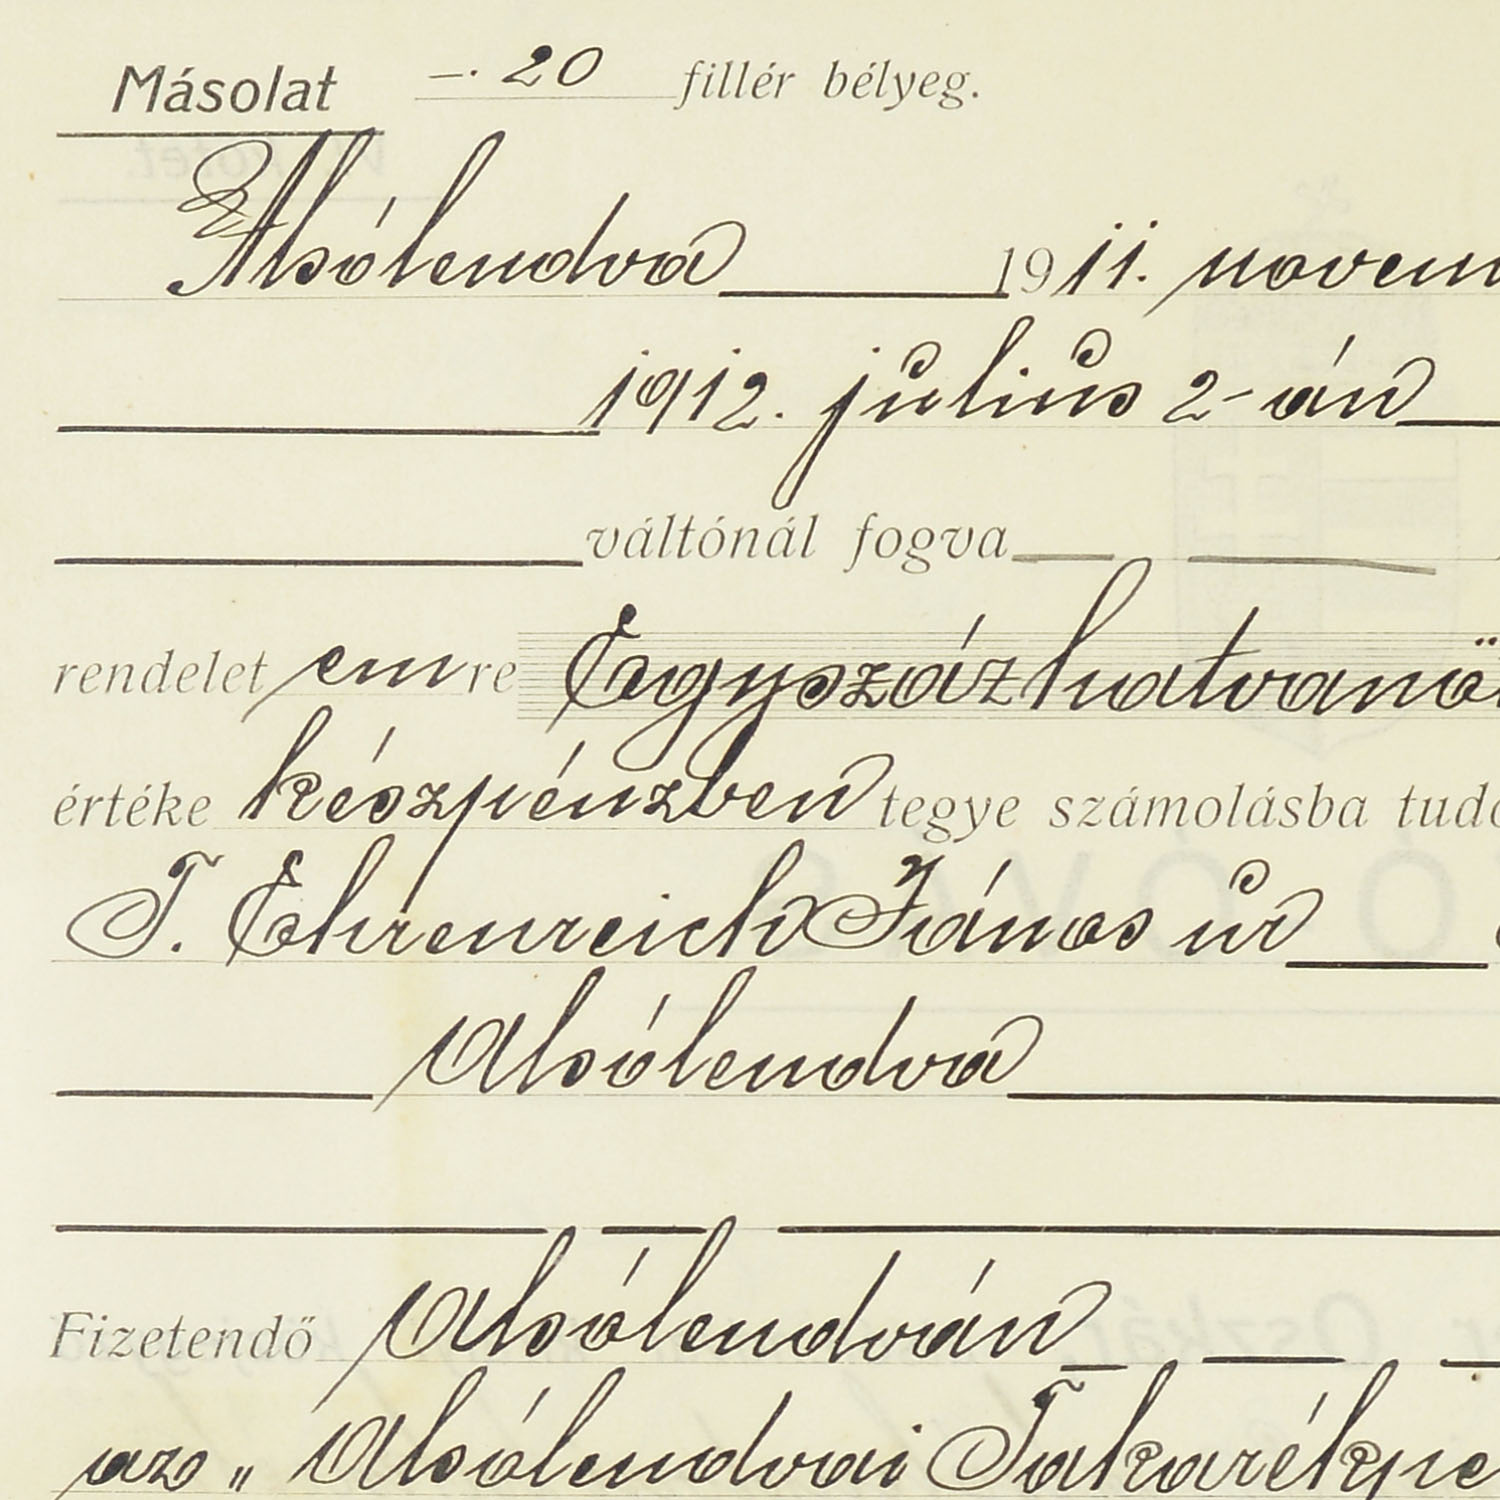 Másolat —. 20 fillér bélyeg.
Alsólendva 1911. novem
1912. július 2-án
váltónál fogva
rendeletemre Egyszázhatvanö
értéke készpénzben tegye számolásba tudó
T. Ehrenreich János úr
Alsólendva
Fizetendő Alsólendván
az „Alsólendvai Takarékpé